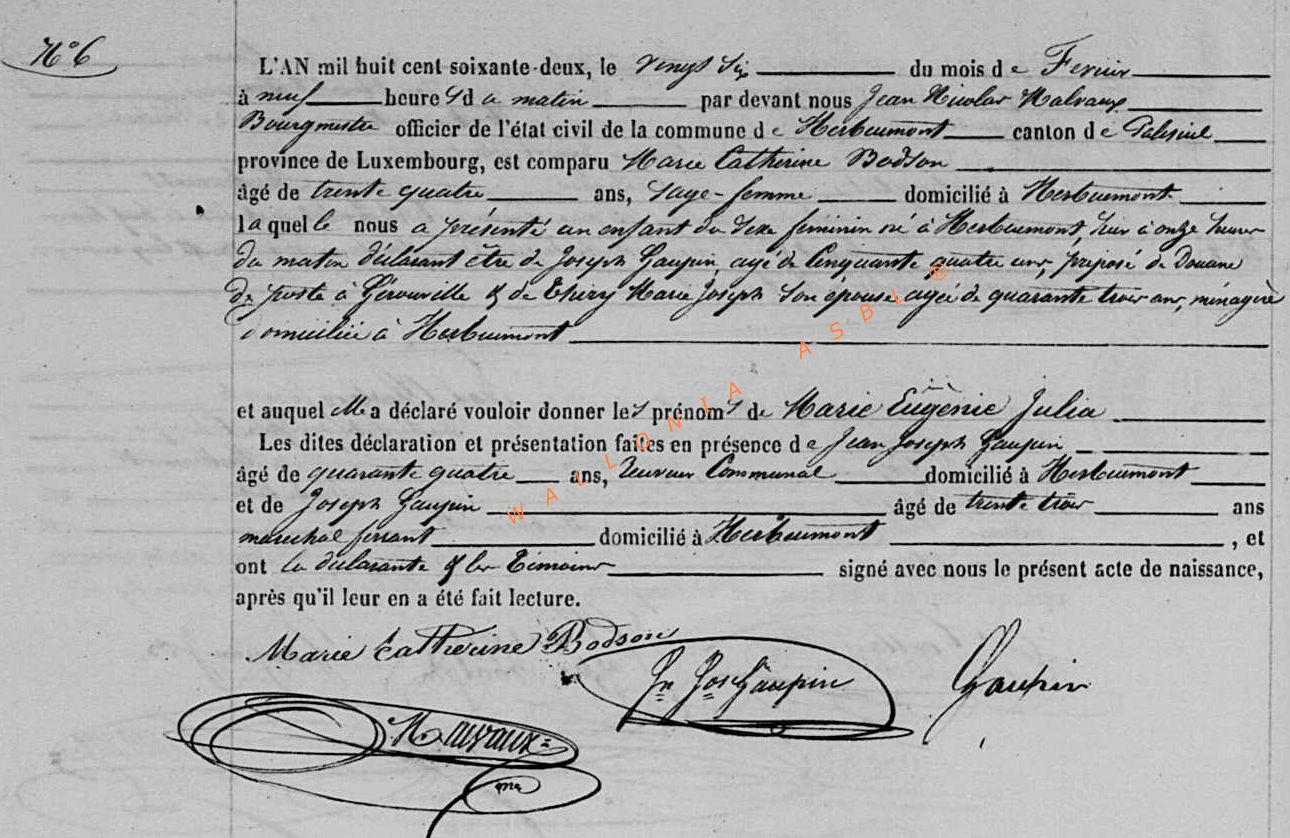 N° 6
L'AN mil huit cent soixante-deux, le vingt six du mois de Fevrier
à neuf heures du matin par devant nous Jean Nicolas Malvaux
Bourgmestre officier de l'état civil de la commune de Herbeumont canton de Paliseul
province de Luxembourg, est comparu Marie Catherine Bodson
âgé de trente quatre ans, sage-femme domicilié à Herbeumont
laquelle nous a présenté un enfant du sexe féminin né à Herbeumont, hier à onze heures
du matin déclarant être de Joseph Gaupin, agé de Cinquante quatre ans, préposé de Douane
de poste à Gérouville & de Thiry Marie Joseph son épouse agée de quarante trois ans, ménagère
domiciliée à Herbeumont
et auquel Elle a déclaré vouloir donner les prénoms de Marie Eugènie Julia
Les dites déclaration et présentation faites en présence de Jean Joseph Gaupin
âgé de quarante quatre ans, Receveur Communal domicilié à Herbeumont
et de Joseph Gaupin âgé de trente trois ans
maréchal ferrant domicilié à Herbeumont, et
ont la déclarante & les Témoins signé avec nous le présent acte de naissance,
après qu'il leur en a été fait lecture.
Marie Catherine Bodson
Jn Jos Gaupin
Gaupin
Malvaux
WALLONIA ASBL ©